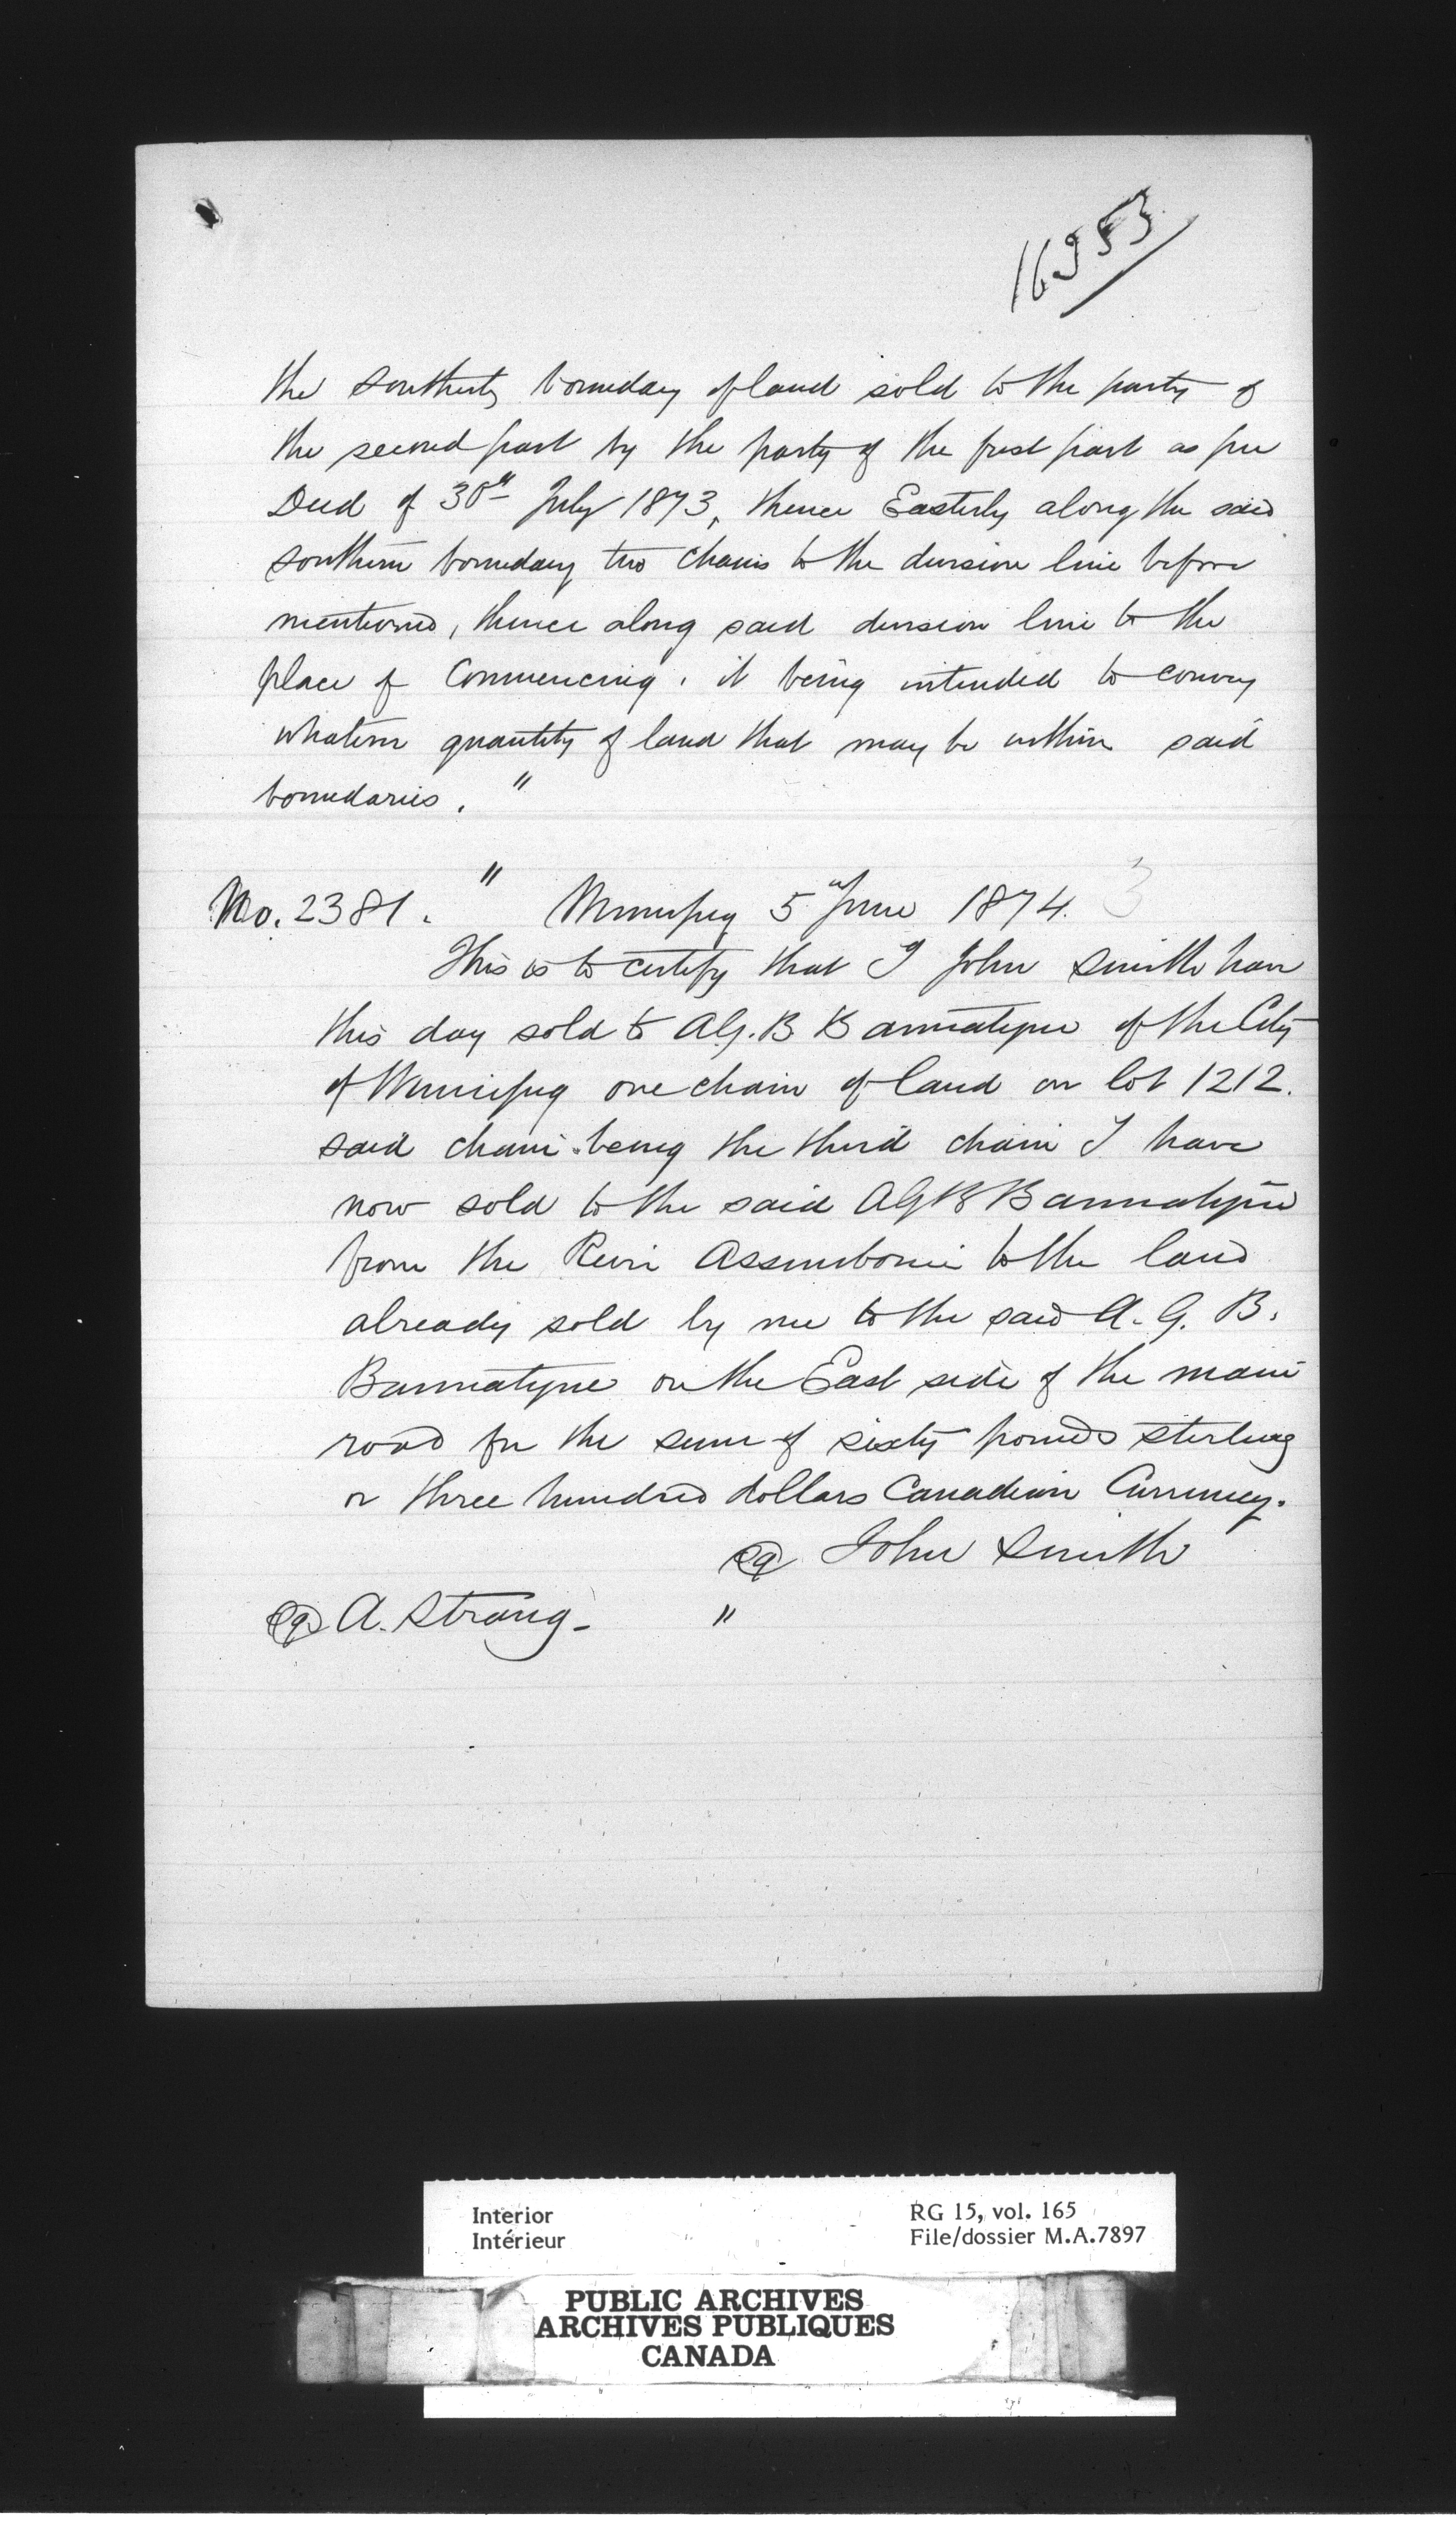 16953
the southerly boundary of land sold to the party of
the second part by the party of the first part as per
Deed of 30th July 1873, thence Easterly along the said
southern boundary two chains to the division line before
mentioned, thence along said division line to the
place of Commencing. it being intended to convey
whatever quantity of land that may be within said
boundaries. "
No. 2381. " Winnipeg 5th June 1874. 3
This is to certify that I John Smith have
this day sold to A.G.B Bannatyne of the City
of Winnipeg one chain of land on lot 1212.
said chain being the third chain I have
now sold to the said AGB Bannatyne
from the River Assiniboine to the land
already sold by me to the said A. G. B.
Bannatyne on the East side of the main
road for the sum of sixty pounds sterling
or three hundred dollars Canadian Currency.
sg John Smith
sgd A. Strang - "
Interior RG 15, vol. 165
Intérieur File/dossier M.A.7897
PUBLIC ARCHIVES
ARCHIVES PUBLIQUES
CANADA